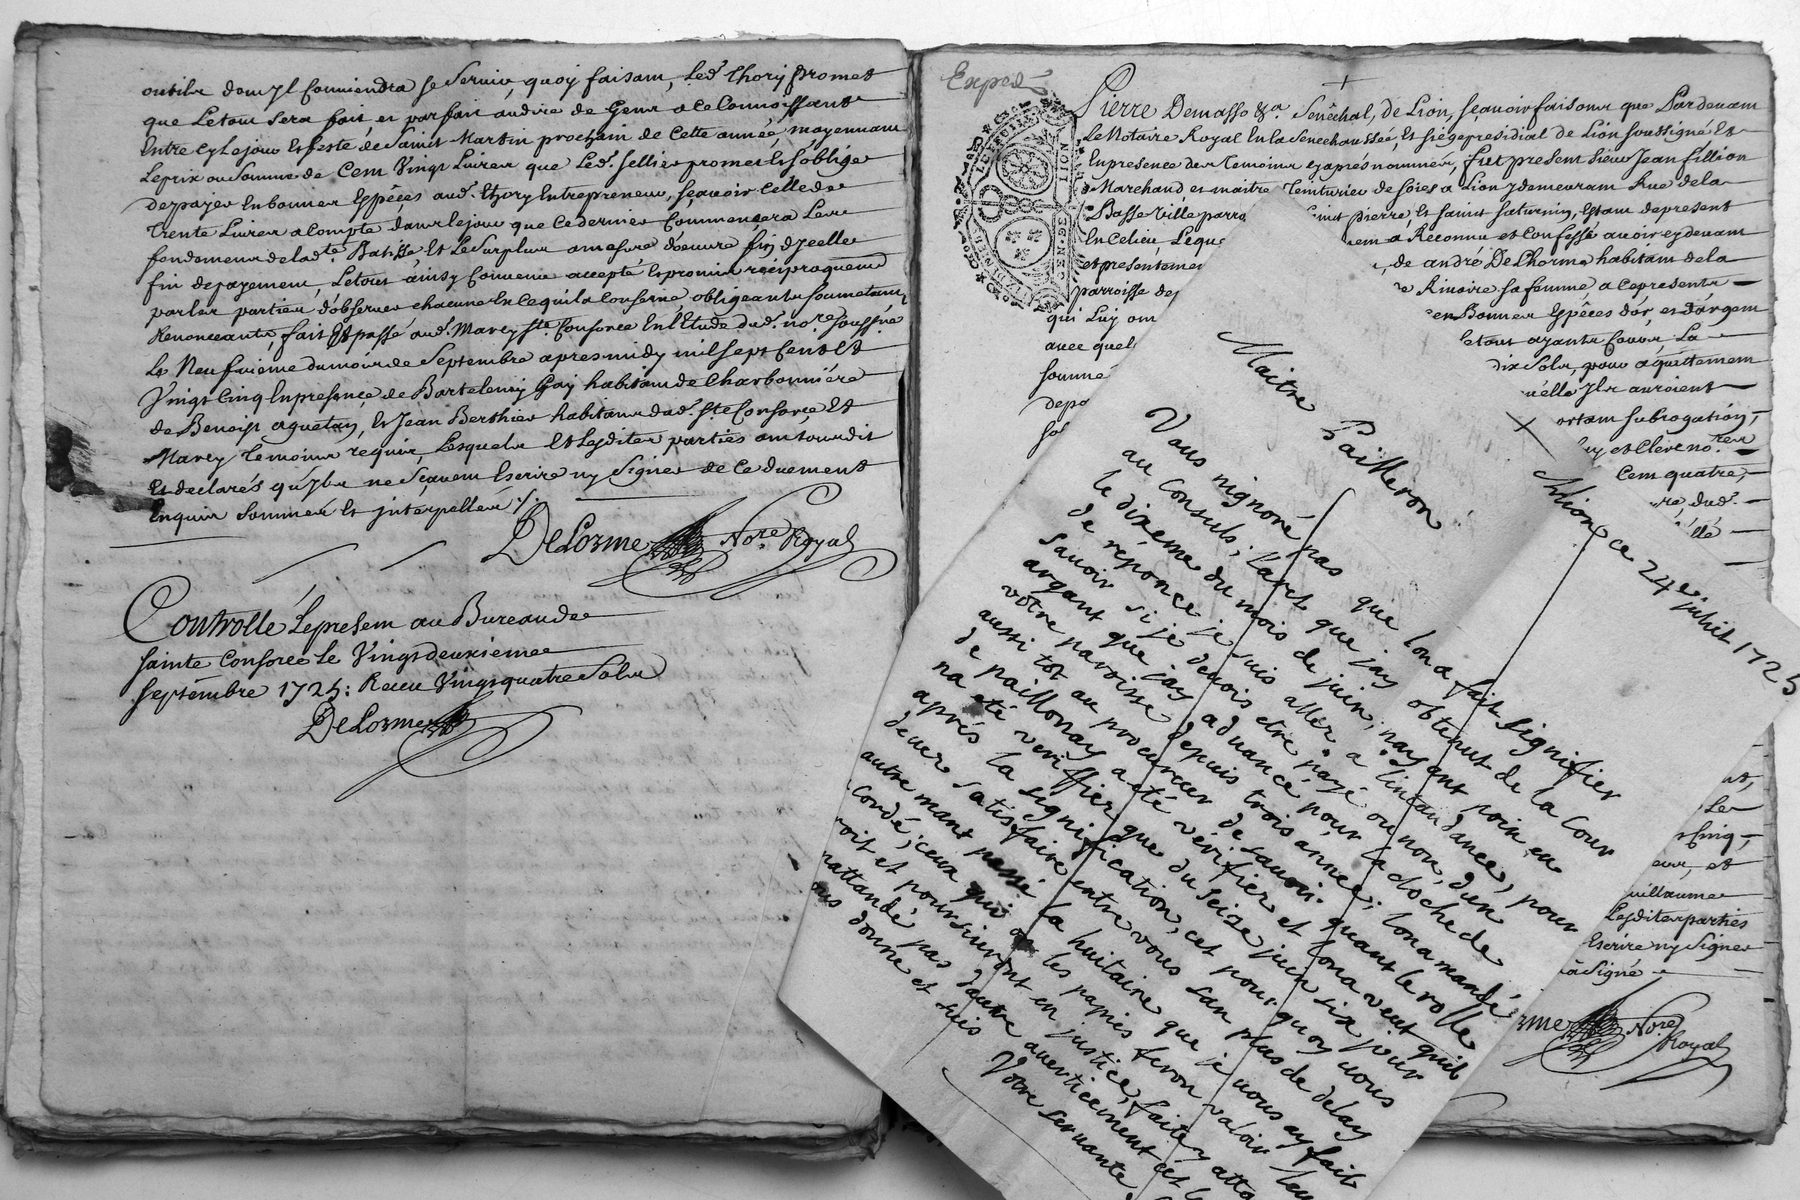 outils dont yl conviendra se servir, quoy faisant, led. Thory promet
que le tout sera fait, et parfait au dire de gens a ce connoissants
entre cy le jour et feste de Saint Martin prochain de cette année, moyennant
le prix ou somme de cent vingt livres que led. Sellier promet et s'oblige
de payer en bonnes espèces aud. thory entrepreneur, sçavoir celle de
trente livres a compte dans le jour que ce dernier commencera les
fondements de lad.te Batisse, et le surplus a mesure d'oeuvre fin dycelle
fin de payement, le tout ainsy convenu accepté et promis réciproquem.t
par les parties d'observer chacune en ce qui la conserne, obligeants soumetant
Renonceants, fait et passé aud. Marcy s.te Consorce en l'Etude dud. no.re soussigné
le neufvieme du mois de Septembre apres midy mil sept cents et
Vingt Cinq en presence de Bartelemy Gay habitant de Charbonnière
de Benoist aguetan, et Jean Berthier habitans dud. s.te Consorce et
Marcy temoins requis, lesquels et lesdites parties ont tous dit
et declarés qu'yls ne sçavent escrire ny signer de ce duement
enquis sommés et interpellés /.
DeLorme No.re Royal
Controllé le present au Bureau de
sainte Consorce le Vingt deuxieme
septembre 1725: Receu Vingt quatre Sols
DeLorme
Exped.
LION
GEN. DE
Pierre Demasso &.a Senêchal, de Lion, sçavoir faisons que Pardevant
Le Notaire Royal en la Senechaussée, et siége presidial de Lion soussigné et
en presence des temoins cy aprés nommés, fut present sieur Jean fillion
Marchand et maitre teinturier de soies a Lion y demeurant Rue de la
Basse Ville parro
saint pierre, et saint saturnin, estant de present
En Celieu, Leque
a Reconnu et Confessé avoir cy devant
et presentemen
, de andré De Lhorme habitant de la
parroisse de
Rivoire sa femme a ce presents
qui Luy ont
en Bonnes Espêces d'or, et d'argent
avec quel
et out ayants cours La
somme
dix sols, pour aquittement
depo
uelle yls auroient
sol
ortant subrogation,
uy et Clerc no.res
Cent quatre,
re, dud.
Le
et
uillaume
Lesdites parties
Escrire ny signer
a Signé
rme No.re
Royal
Alion ce 24e juhet 1725
Maitre Pailleron
Vous nignoré pas que lon a fait signifier
au consuls, l'aret que jay obtenut de la Cour
le dixeme du mois de juin, nayant poin eu
de reponce je suis aller a lintandance, pour
savoir si je devois etre payé ou non, d'un
argant que jay advancé pour la cloche de
votre paroisse depuis trois années, lon a mandé
aussi tot au procureer de savoir quant le rolle
de paillonay a été verifier et lon a veut quil
na été veriffier que du seize juin six jour
après la signification, cet pour quoy vous
dever satisfaire entre vous san plus de delay
autremant passé la huitaine que je vous ay fait
cordé, ceux qui on les papies feron valoir leu
roit et poursuivront en justice, faites atta
nattandé pas dautre avertisement et le
ous donne et suis
Votre servante